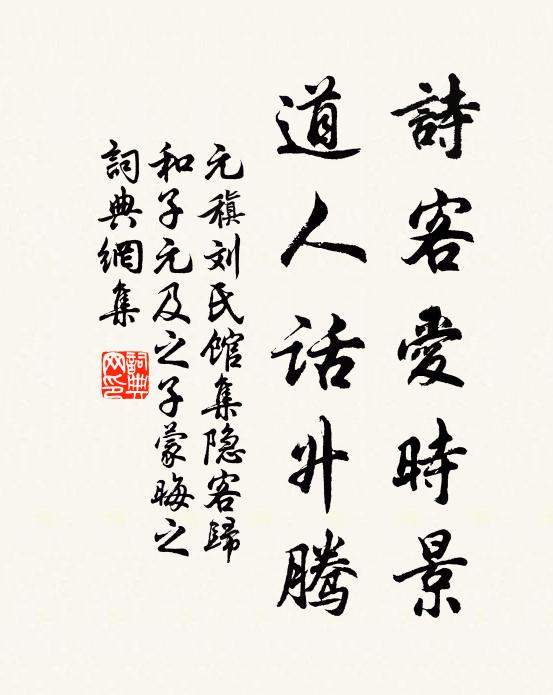 詩客愛時景
道人话升腾
元稹刘氏馆集隐客歸
和子元及之子蒙晦之
詞典網集
詞典网印